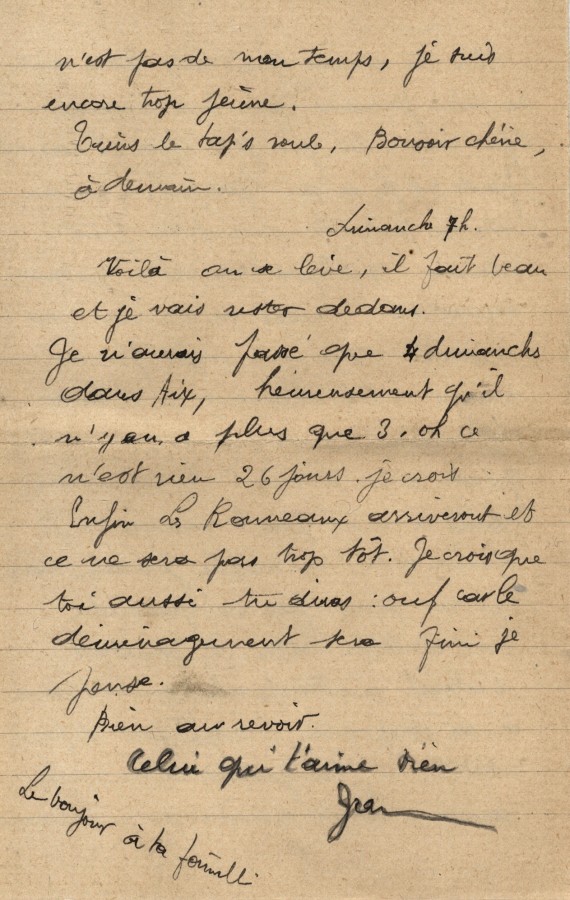 n'est pas de mon temps, je suis
encore trop jeune.
Tiens le tap's roule, Bonsoir chérie,
à demain.
Dimanche 7h.
Voilà on se lève, il fait beau
et je vais rester dedans.
Je n'aurais passé que 4 dimanchs
dans Aix, heureusement qu'il
n'y en a plus que 3. oh ce
n'est rien 26 jours. je crois
Enfin Les Rouveaux arriveront et
ce ne sera pas trop tôt. Je crois que
toi aussi tu diras : ouf car le
déménagement sera fini je
pense.
Bien au revoir.
Celui qui t'aime bien
Jean
Le bonjour à ta famille